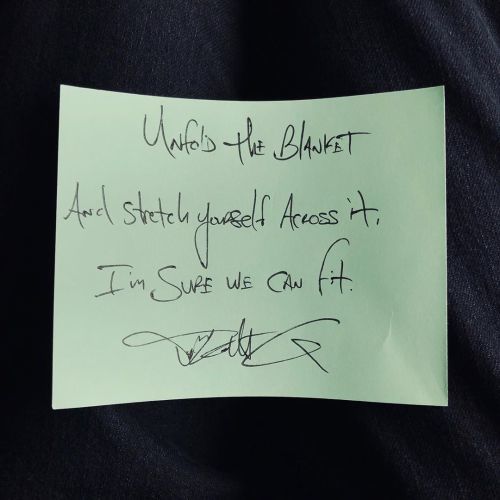 Unfold the Blanket
And stretch yourself Across it,
I'm SURE WE CAN fit.